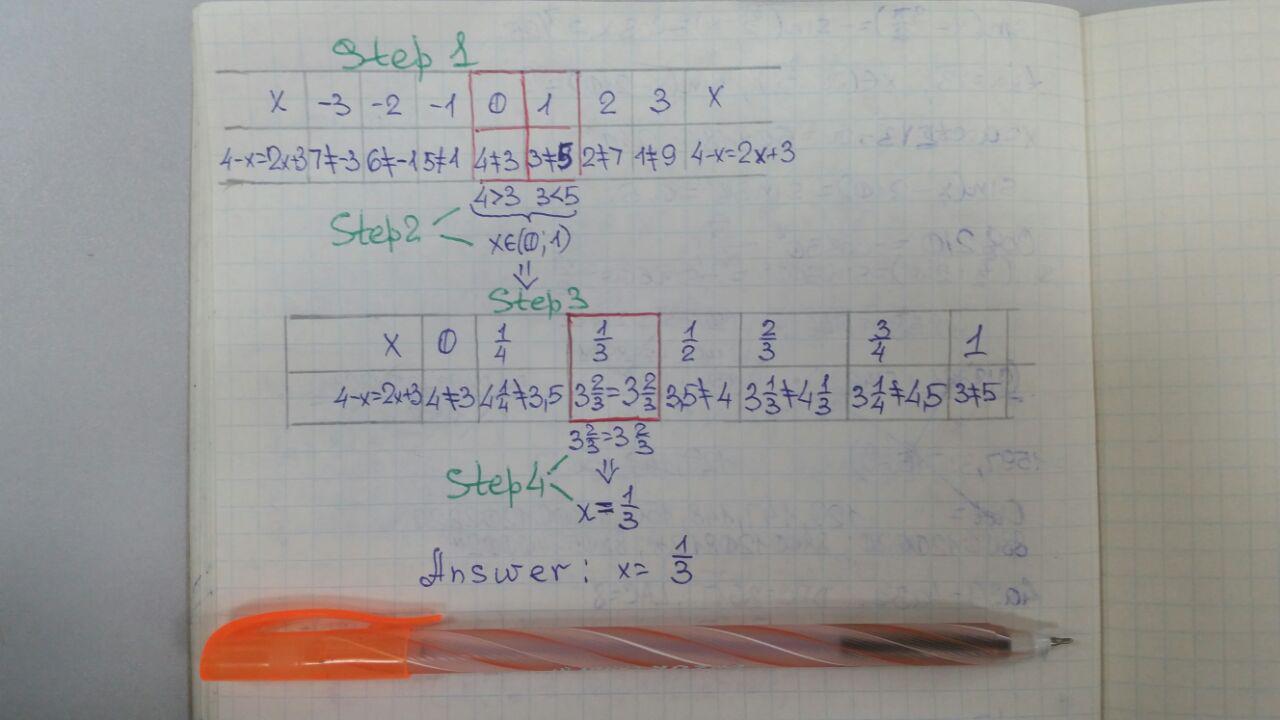 Step 1
x -3 -2 -1 0 1 2 3 x
4-x=2x+3 7≠-3 6≠-1 5≠1 4≠3 3≠5 2≠7 1≠9 4-x=2x+3
4>3 3<5
Step2
x∈(0;1)
⇓
Step3
x 0 1/4 1/3 1/2 2/3 3/4 1
4-x=2x+3 4≠3 4 1/4≠3,5 3 2/3=3 2/3 3,5≠4 3 1/3≠4 1/3 3 1/4≠4,5 3≠5
3 2/3=3 2/3
⇓
Step4
x=1/3
Answer: x= 1/3